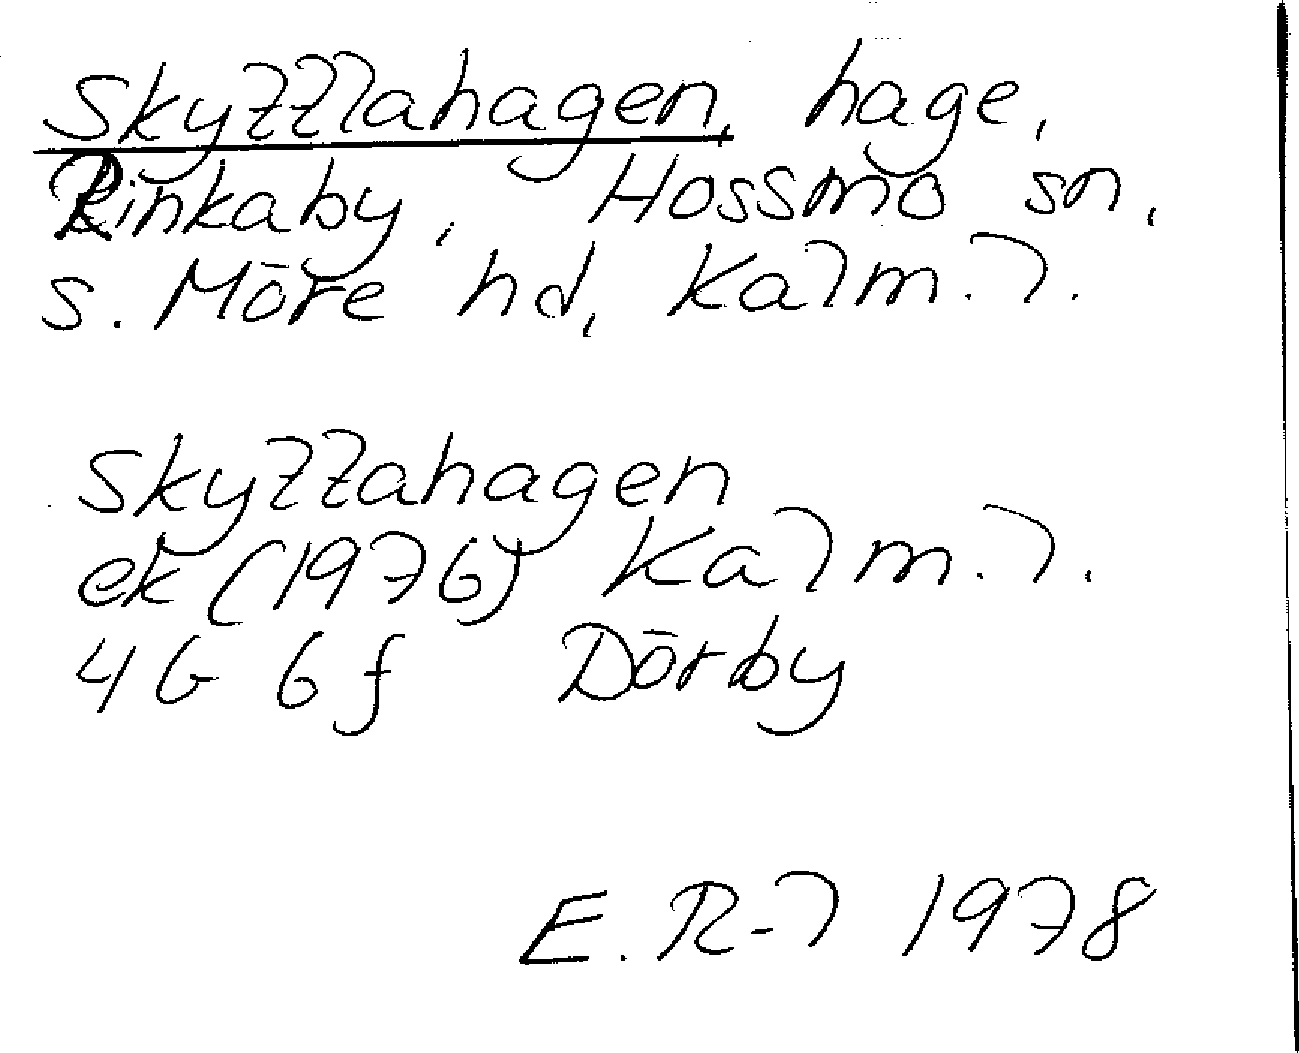 Skyttlahagen, hage,
Rinkaby, Hossmo sn,
s. Möre hd, Kalm. l.
Skyttahagen
ek (1976) Kalm. l.
4G 6f Dörby
E. R-l 1978